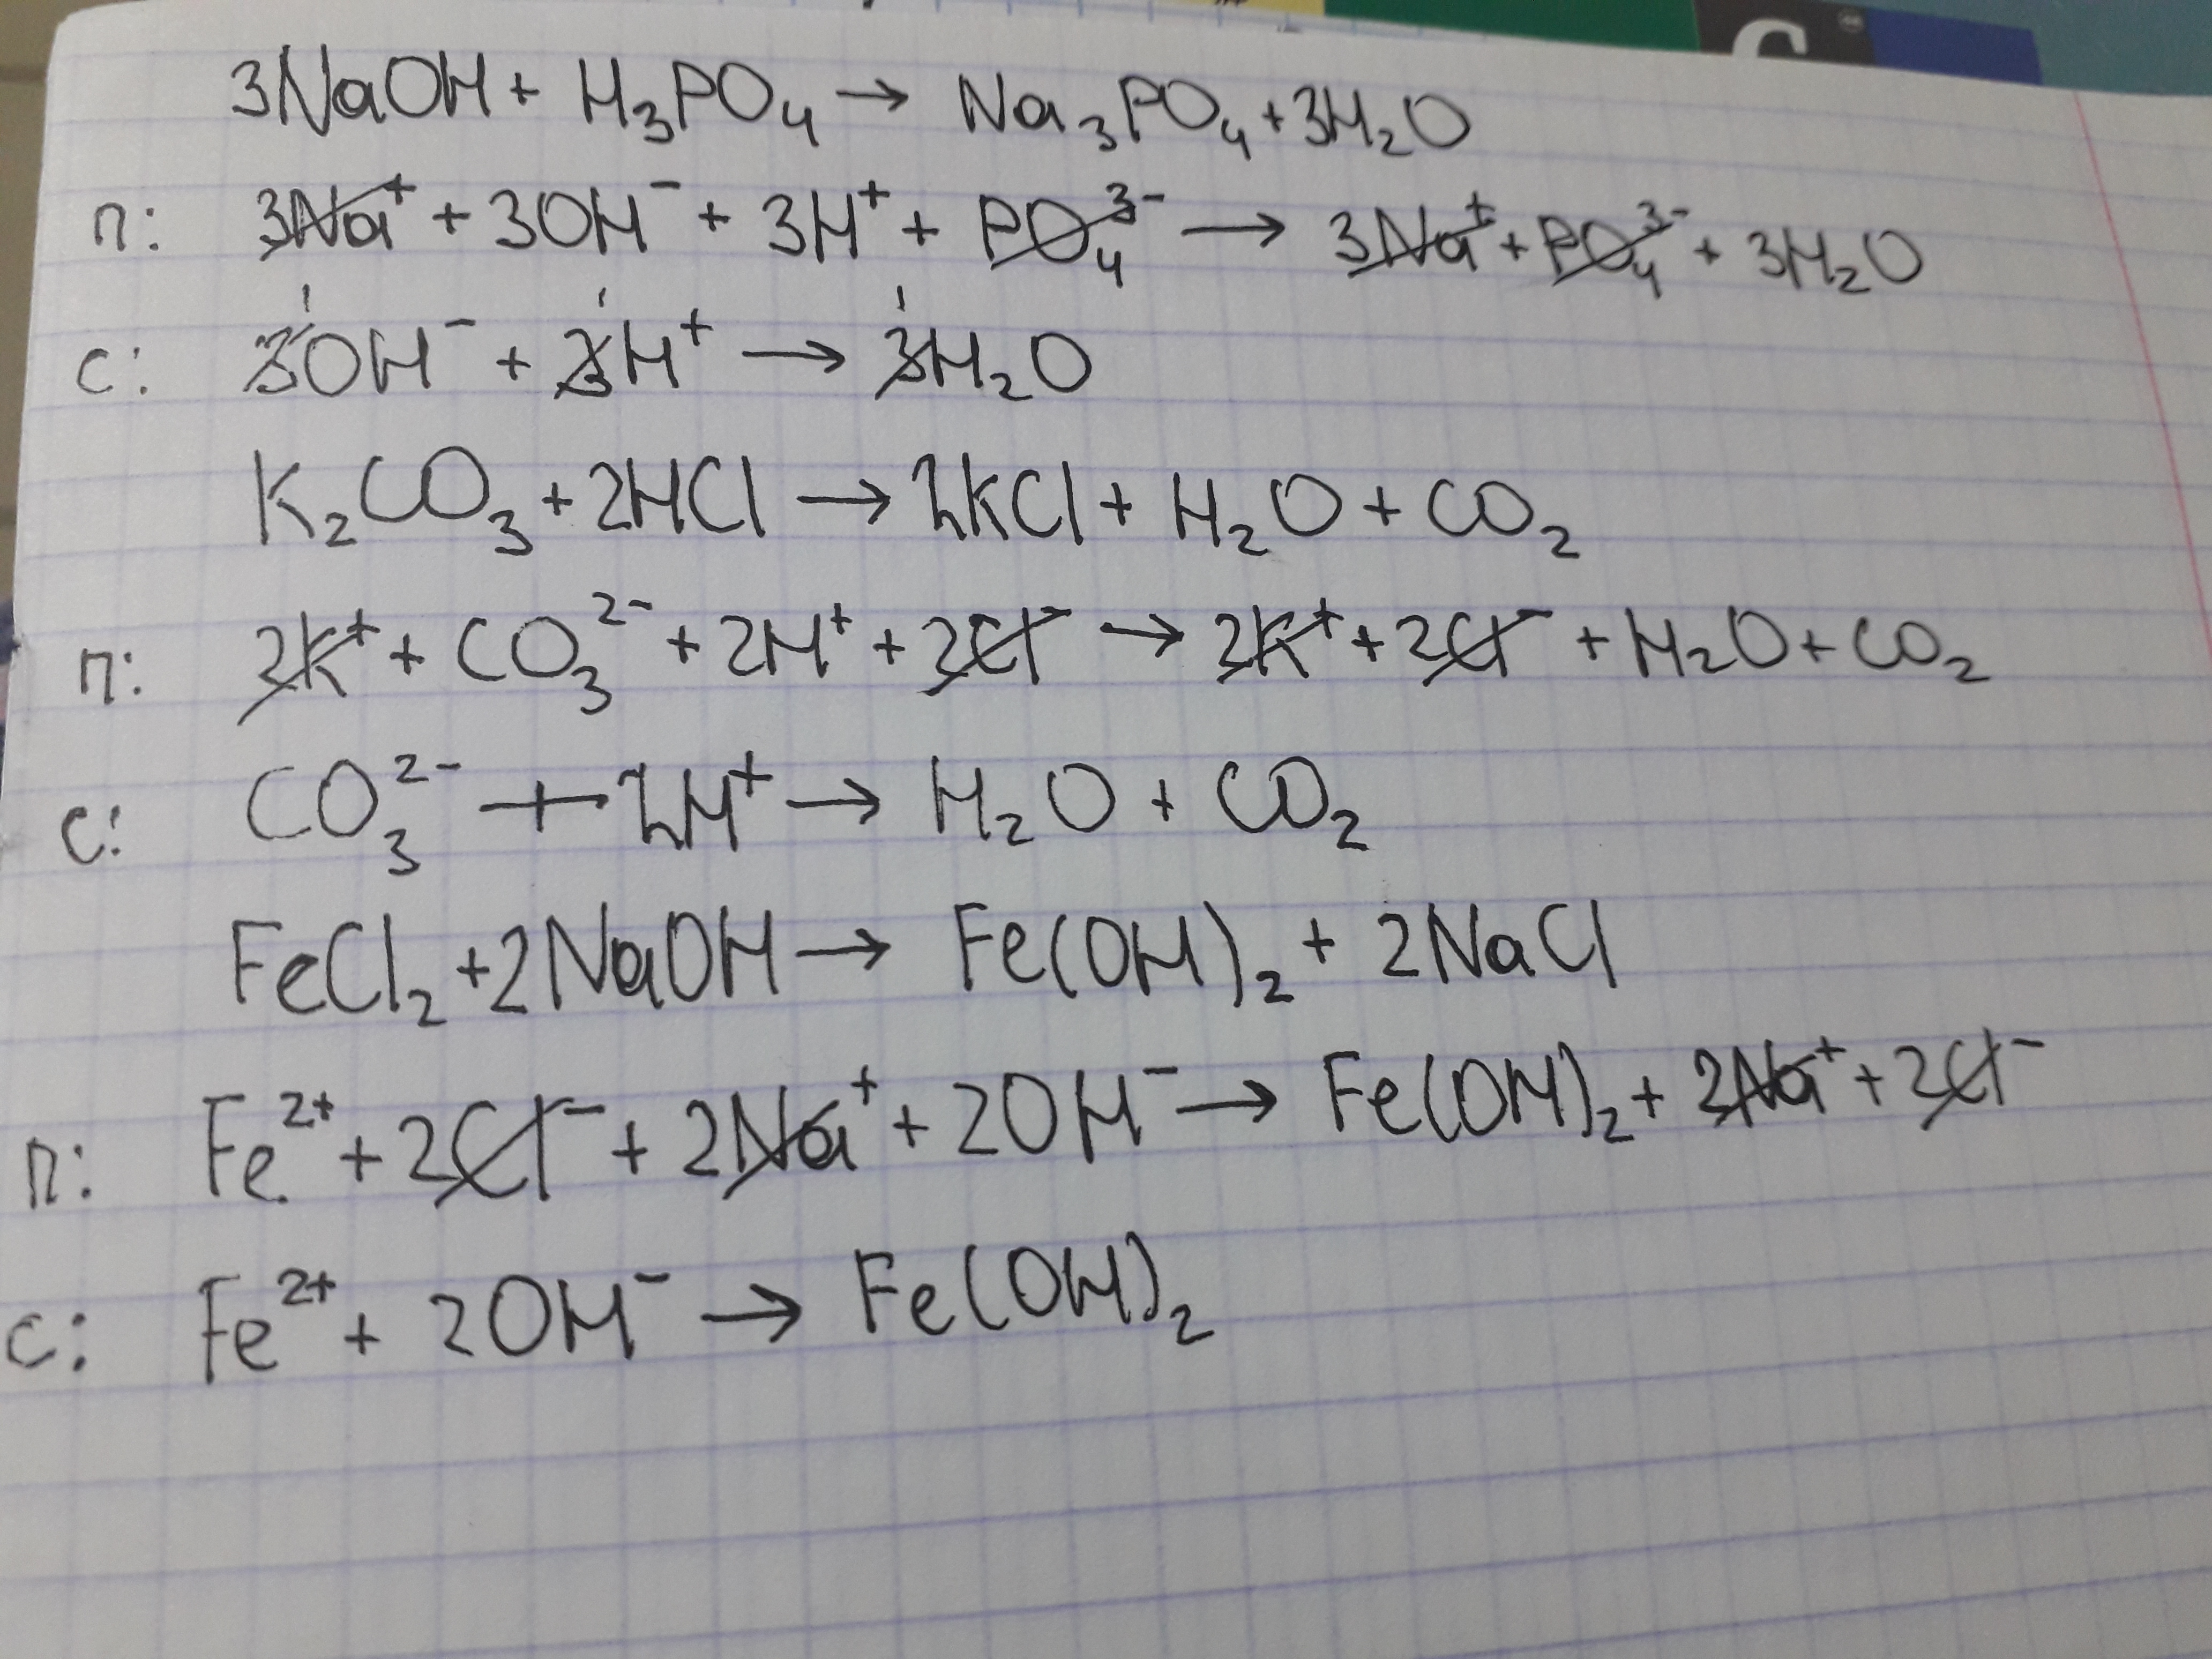 3NaOH + H₃PO₄ → Na₃PO₄ + 3H₂O
п: 3Na⁺ + 3OH⁻ + 3H⁺ + PO₄³⁻ → 3Na⁺ + PO₄³⁻ + 3H₂O
с: 3OH⁻ + 3H⁺ → 3H₂O
K₂CO₃ + 2HCl → 2KCl + H₂O + CO₂
п: 2K⁺ + CO₃²⁻ + 2H⁺ + 2Cl⁻ → 2K⁺ + 2Cl⁻ + H₂O + CO₂
с: CO₃²⁻ + 2H⁺ → H₂O + CO₂
FeCl₂ + 2NaOH → Fe(OH)₂ + 2NaCl
п: Fe²⁺ + 2Cl⁻ + 2Na⁺ + 2OH⁻ → Fe(OH)₂ + 2Na⁺ + 2Cl⁻
с: Fe²⁺ + 2OH⁻ → Fe(OH)₂